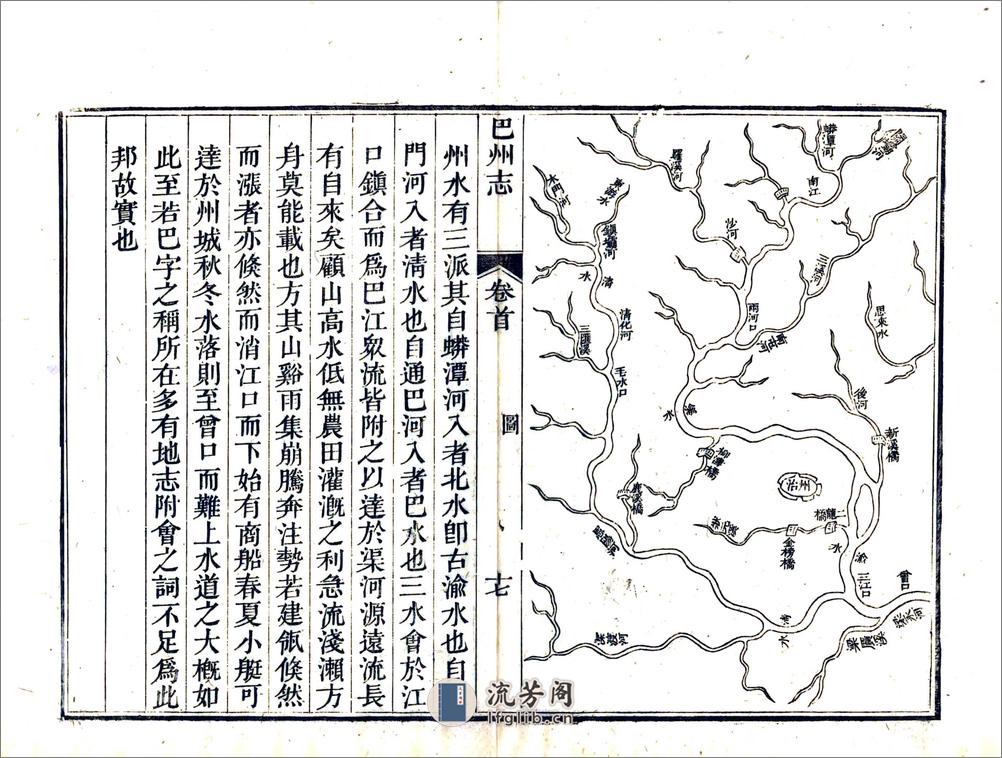 蟒潭河
南江
羅溪河
沙河
木門河
清
水
清化河
三匯溪
毛水口
兩河口
三溪河
恩來水
後河
新溪橋
渝
水
柳津橋
州治
二龍橋
金榜橋
鹿溪橋
渝
水
三江口
曾口
清
水
巴州志
卷首
圖
十七
州水有三派其自蟒潭河入者北水卽古渝水也自木
門河入者淸水也自通巴河入者巴水也三水會於江
口鎭合而爲巴江眾流皆附之以達於渠河源遠流長
有自來矣顧山高水低無農田灌漑之利急流淺瀨方
身莫能載也方其山谿雨集崩騰奔注勢若建瓴倐然
而漲者亦倐然而消江口而下始有商船春夏小艇可
達於州城秋冬水落則至曾口而難上水道之大槪如
此至若巴字之稱所在多有地志附會之詞不足爲此
邦故實也
流芳阁
lfglib.cn